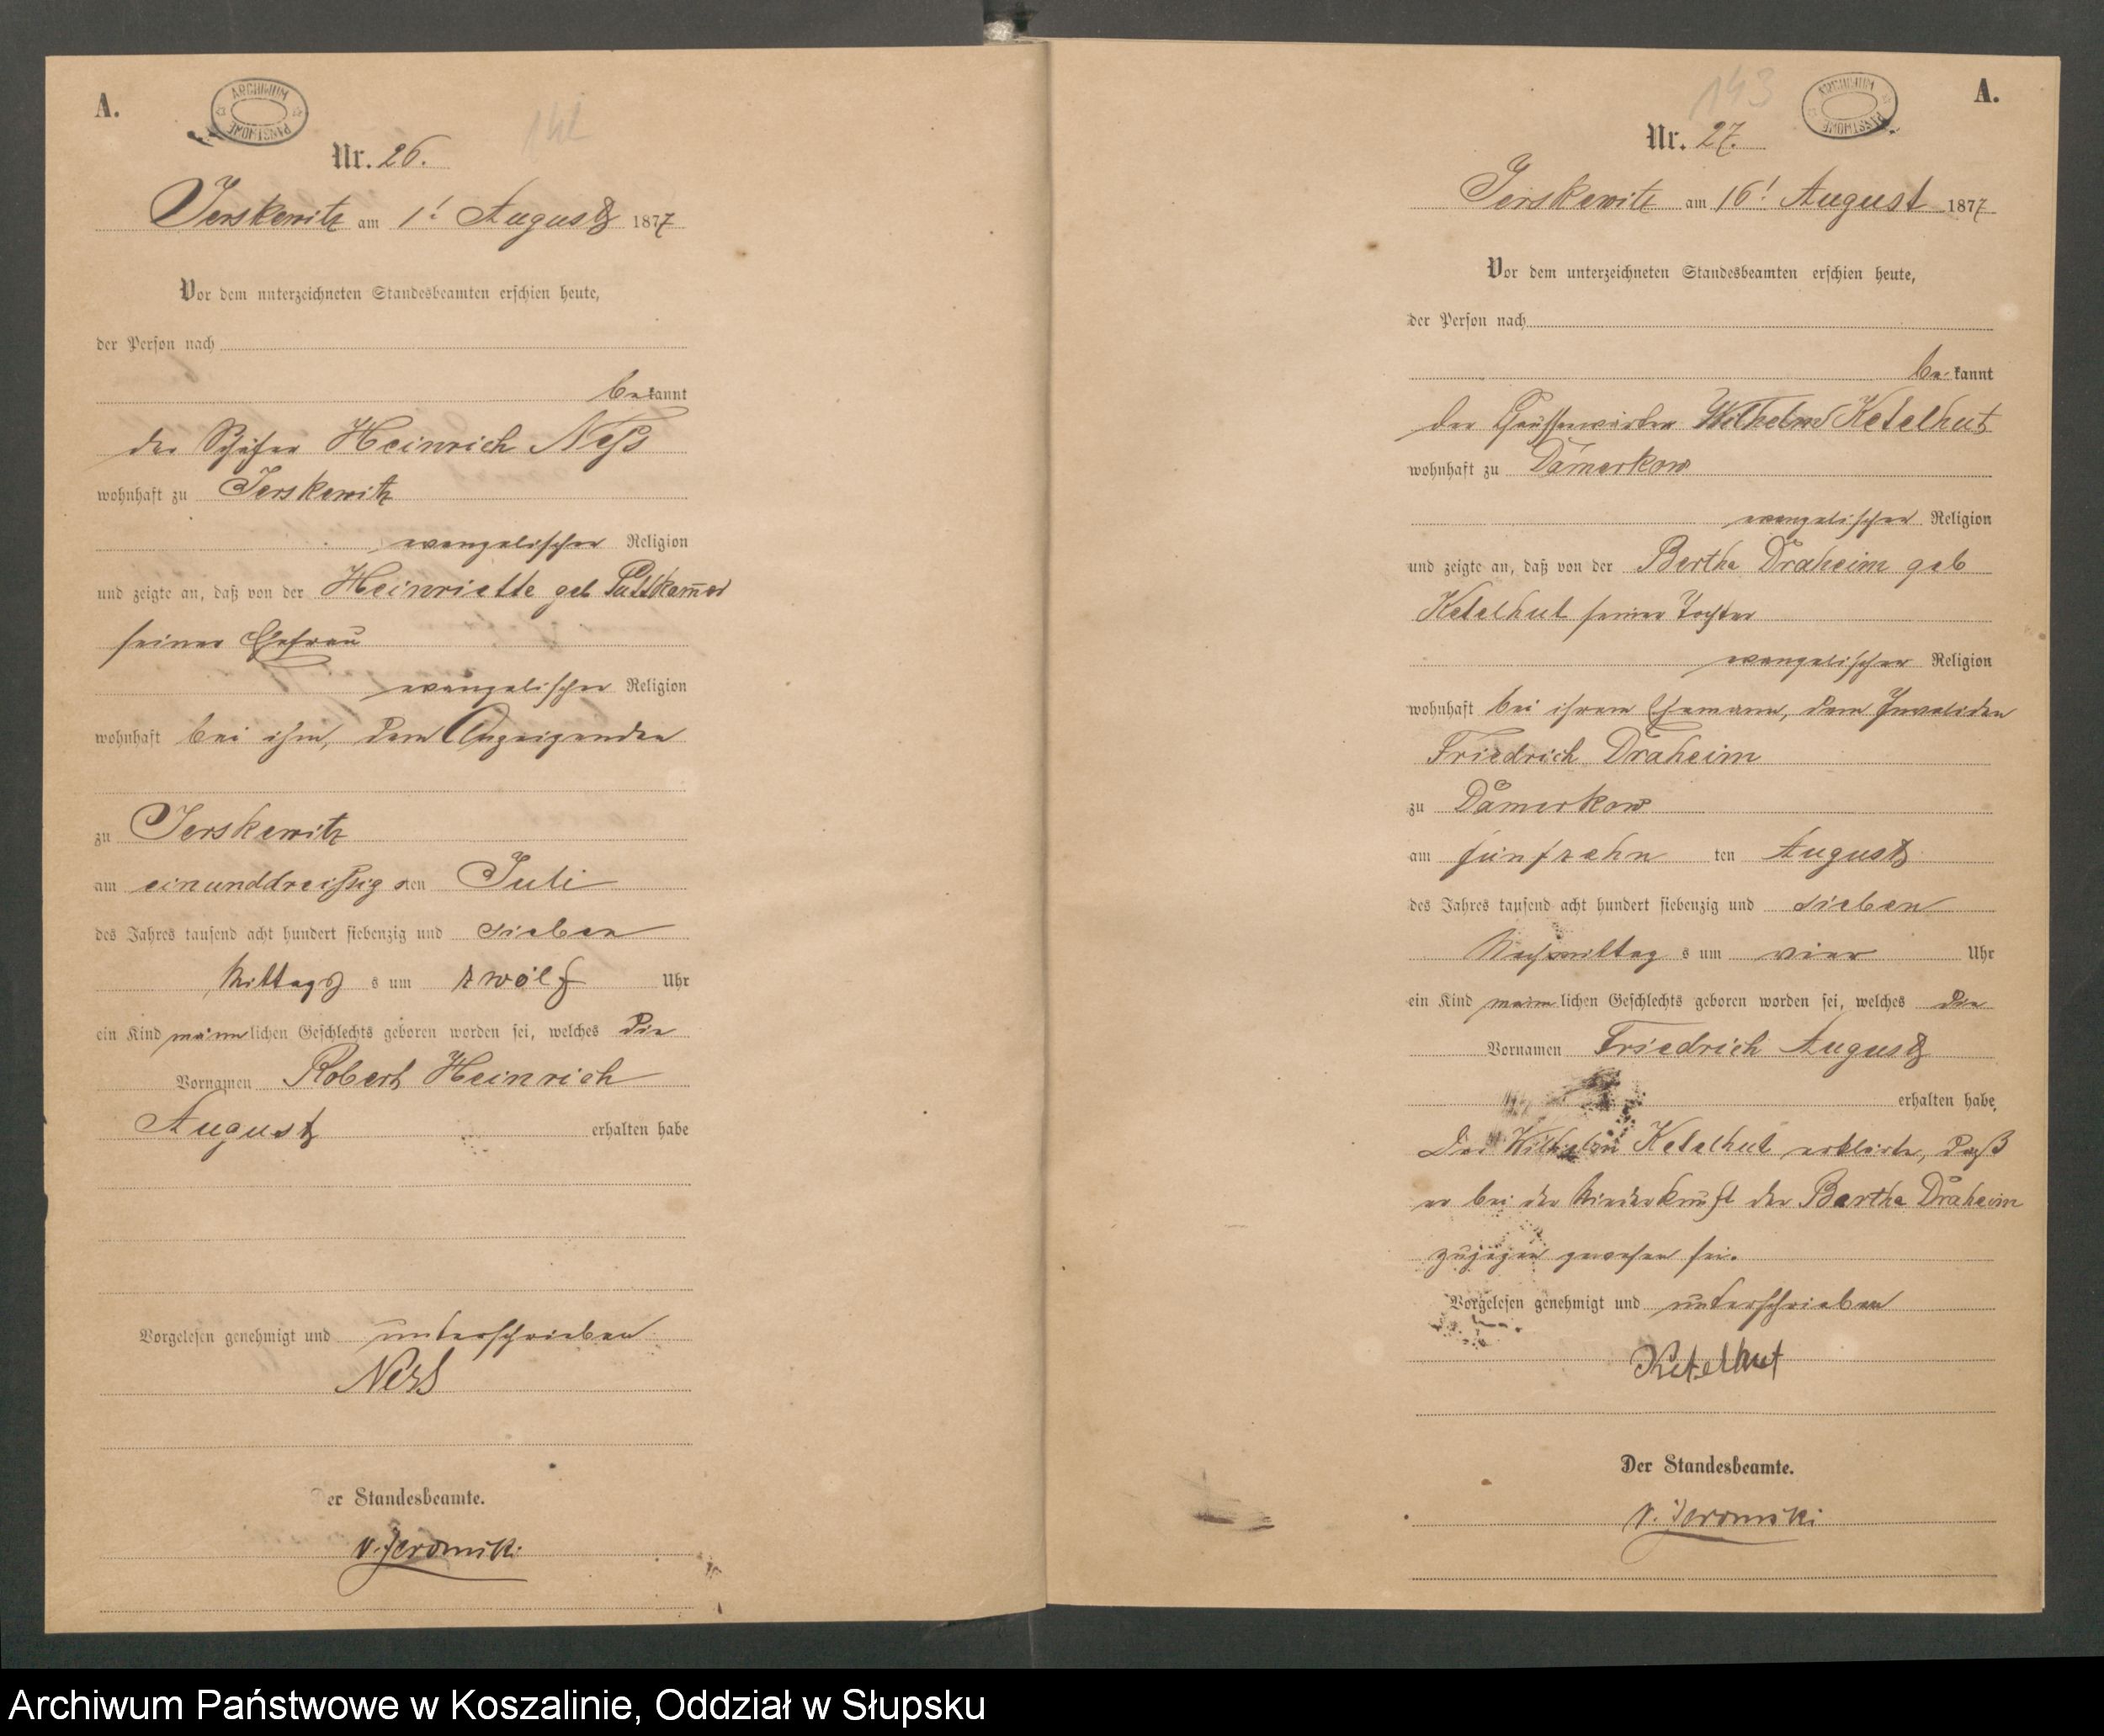 A.
ARCHIWUM PAŃSTWOWE
142
Nr. 26.
Jerskewitz am 1! August 1877
Vor dem unterzeichneten Standesbeamten erschien heute,
der Person nach
bekannt
der Schäfer Heinrich Neß
wohnhaft zu Jerskewitz
evangelischer Religion
und zeigte an, daß von der Heinriette geb Puttkam̅er
seiner Ehefrau
evangelischer Religion
wohnhaft bei ihm, dem Anzeigenden
zu Jerskewitz
am einunddreißigsten Juli
des Jahres tausend acht hundert siebenzig und sieben
Mittags s um zwölf Uhr
ein Kind männlichen Geschlechts geboren worden sei, welches die
Vornamen Robert Heinrich
August erhalten habe
Vorgelesen genehmigt und unterschrieben
Ness
Der Standesbeamte.
v. Jeromski
A.
ARCHIWUM PAŃSTWOWE
143
Nr. 27.
Jerskewitz am 16! August 1877
Vor dem unterzeichneten Standesbeamten erschien heute,
der Person nach
bekannt
der Wilhelm Ketelhut
wohnhaft zu Damerkow
evangelischer Religion
und zeigte an, daß von der Bertha Draheim geb
Ketelhut seiner Tochter
evangelischer Religion
wohnhaft bei ihrem Ehemann, dem Invaliden
Friedrich Draheim
zu Damerkow
am fünfzehn ten August
des Jahres tausend acht hundert siebenzig und sieben
Nachmittag s um vier Uhr
ein Kind männlichen Geschlechts geboren worden sei, welches die
Vornamen Friedrich August
erhalten habe,
Der Wilhelm Ketelhut erklärte, daß
er bei der Niederkunft der Bertha Draheim
zugegen gewesen sei.
Vorgelesen genehmigt und unterschrieben
Ketelhut
Der Standesbeamte.
v. Jeromski
Archiwum Państwowe w Koszalinie, Oddział w Słupsku